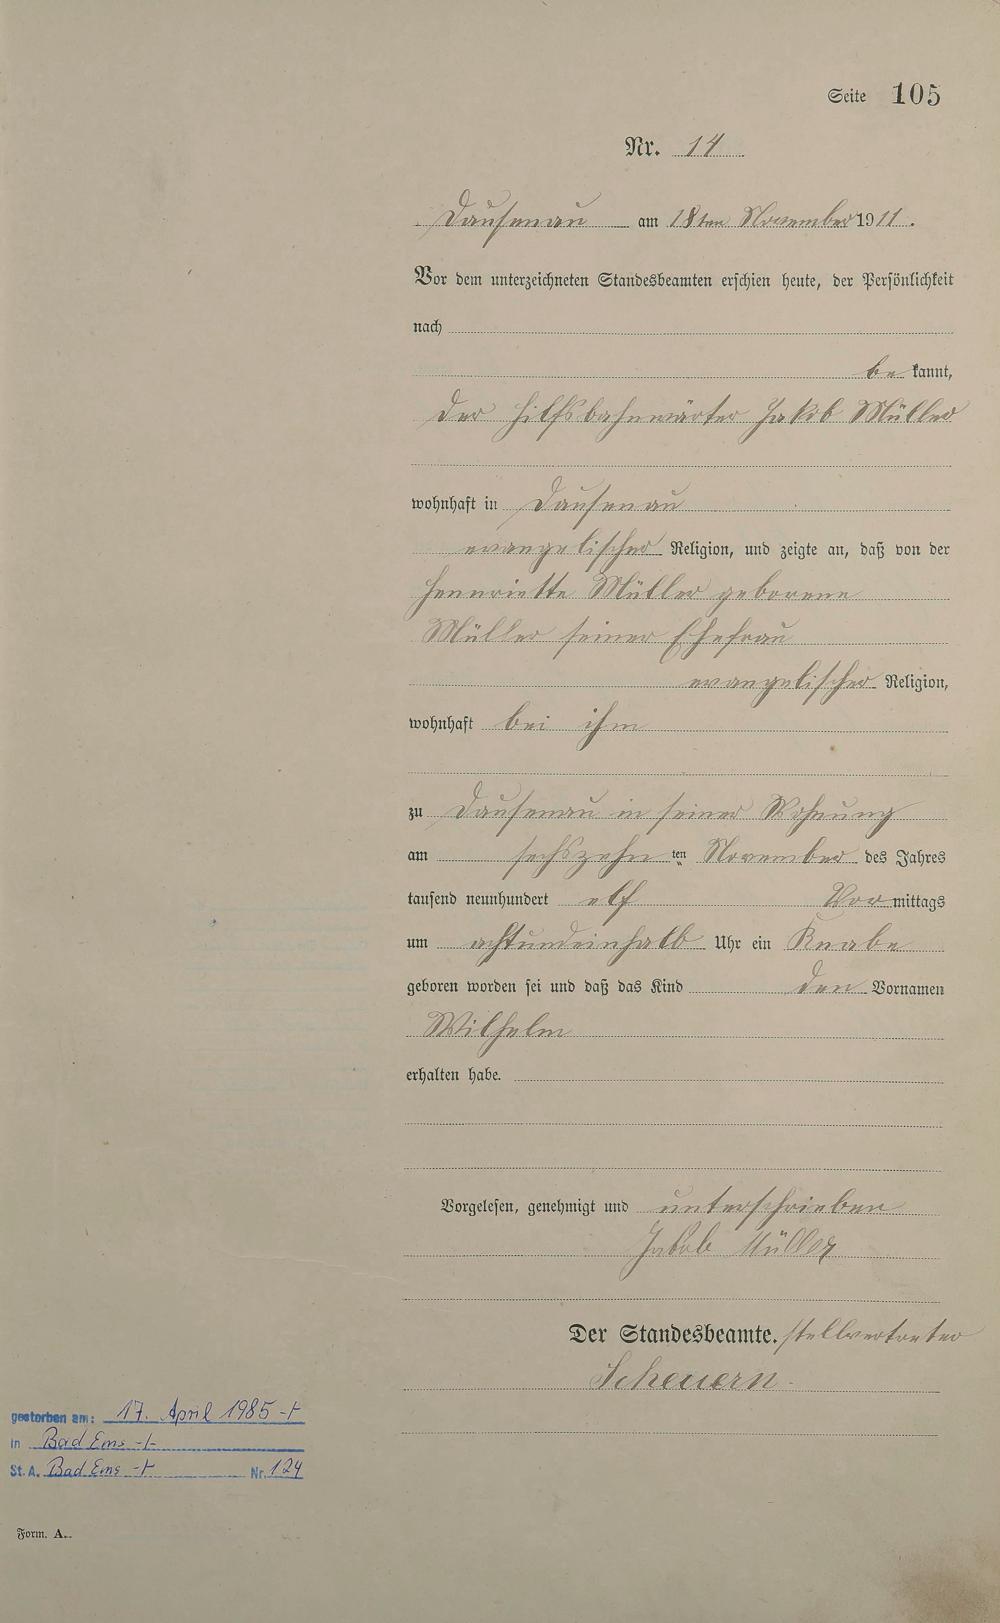 Seite 105
Nr. 14
Dausenau am 18ten November 1911.
Vor dem unterzeichneten Standesbeamten erschien heute, der Persönlichkeit
nach
be kannt,
der Hilfsbahnwärter Jakob Müller
wohnhaft in Dausenau
evangelischer Religion, und zeigte an, daß von der
Hennriette Müller geborene
Müller seiner Ehefrau
evangelischer Religion,
wohnhaft bei ihm
zu Dausenau in seiner Wohnung
am sechszehn ten November des Jahres
tausend neunhundert elf Vor mittags
um achtundeinhalb Uhr ein Knabe
geboren worden sei und daß das Kind den Vornamen
Wilhelm
erhalten habe.
Vorgelesen, genehmigt und unterschrieben
Jakob Müller
Der Standesbeamte. stellvertreter
Scheuern.
gestorben am: 17. April 1985 -/-
in Bad Ems -/-
St.A. Bad Ems -/- Nr. 124
Form. A.